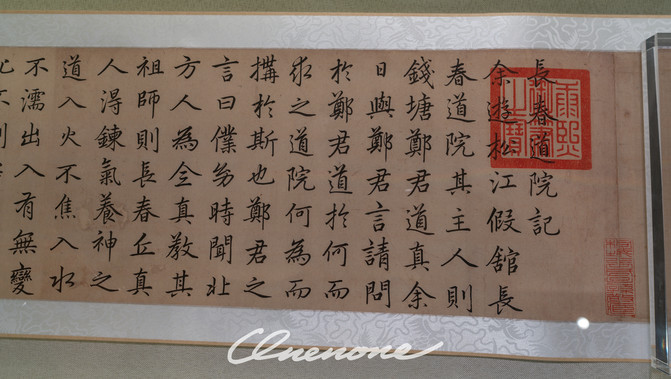 長春道院記
余遊松江假舘長
春道院其主人則
錢塘鄭君道真余
日與鄭君言請問
於鄭君道於何而
求之道院何為而
搆於斯也鄭君之
言曰僕㓜時聞北
方人為全真教其
祖師則長春丘真
人淂鍊氣養神之
道入火不焦入水
不濡出入有無變